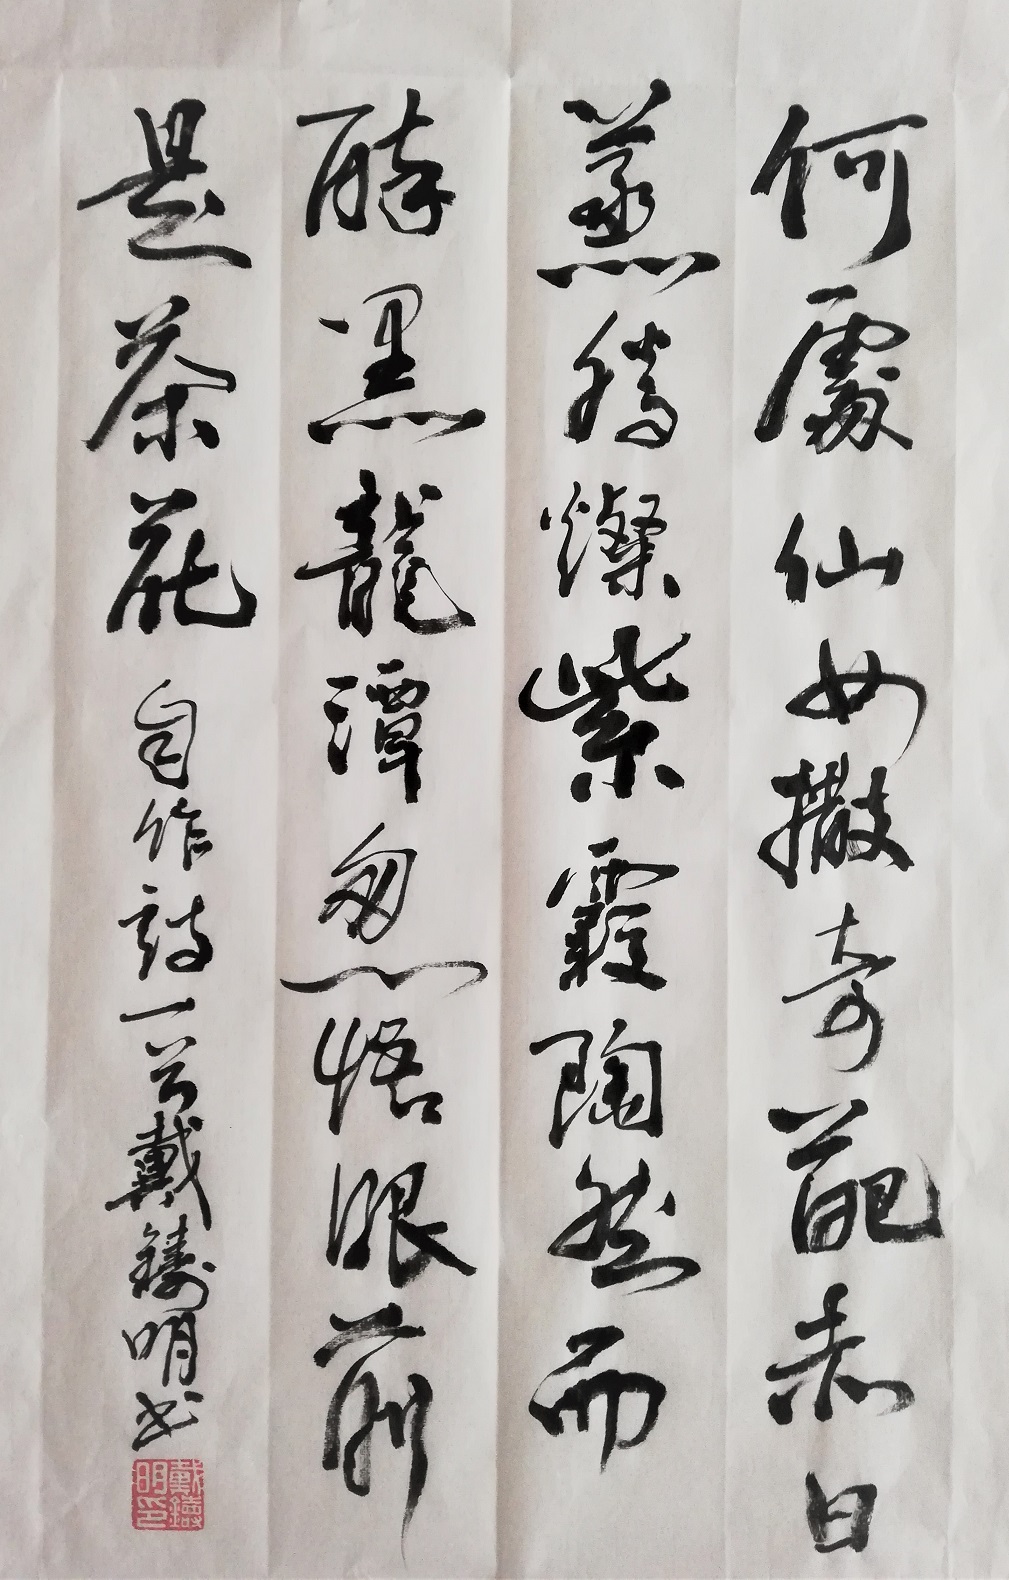 何處仙女撒奇葩赤日
蒸騰燦紫霞陶然而
醉黑龍潭忽悟眼前
是茶花 自作詩一首戴鑄明书
戴鑄明印